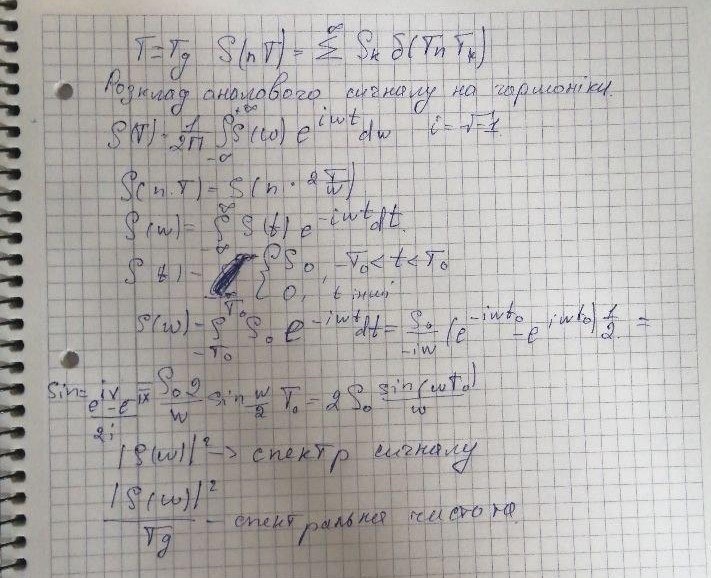 T = Tg S(nT) = ∑^∞ Sk δ(Tn Tk)
Розклад аналового сигналу на гармоніки.
S(T) = 1/2π ∫_{-∞}^{+∞} S(w) e^{iwt} dw i = √-1
S(n·T) = S(n · 2π/w)
S(w) = ∫_{-∞}^{∞} S(t) e^{-iwt} dt.
S t) = { S₀, -T₀ < t < T₀
0, t інші
S(w) - ∫_{-T₀}^{T₀} S₀ e^{-iwt} dt = S₀/-iw (e^{-iwt₀} - e^{iwt₀}) 1/2 =
sin = e^{ix} - e^{-ix} / 2i = S₀2/w sin w/2 T₀ = 2S₀ sin(wT₀)/w
|S(w)|² -> спектр сигналу
|S(w)|²/Tg - спектральна чистота